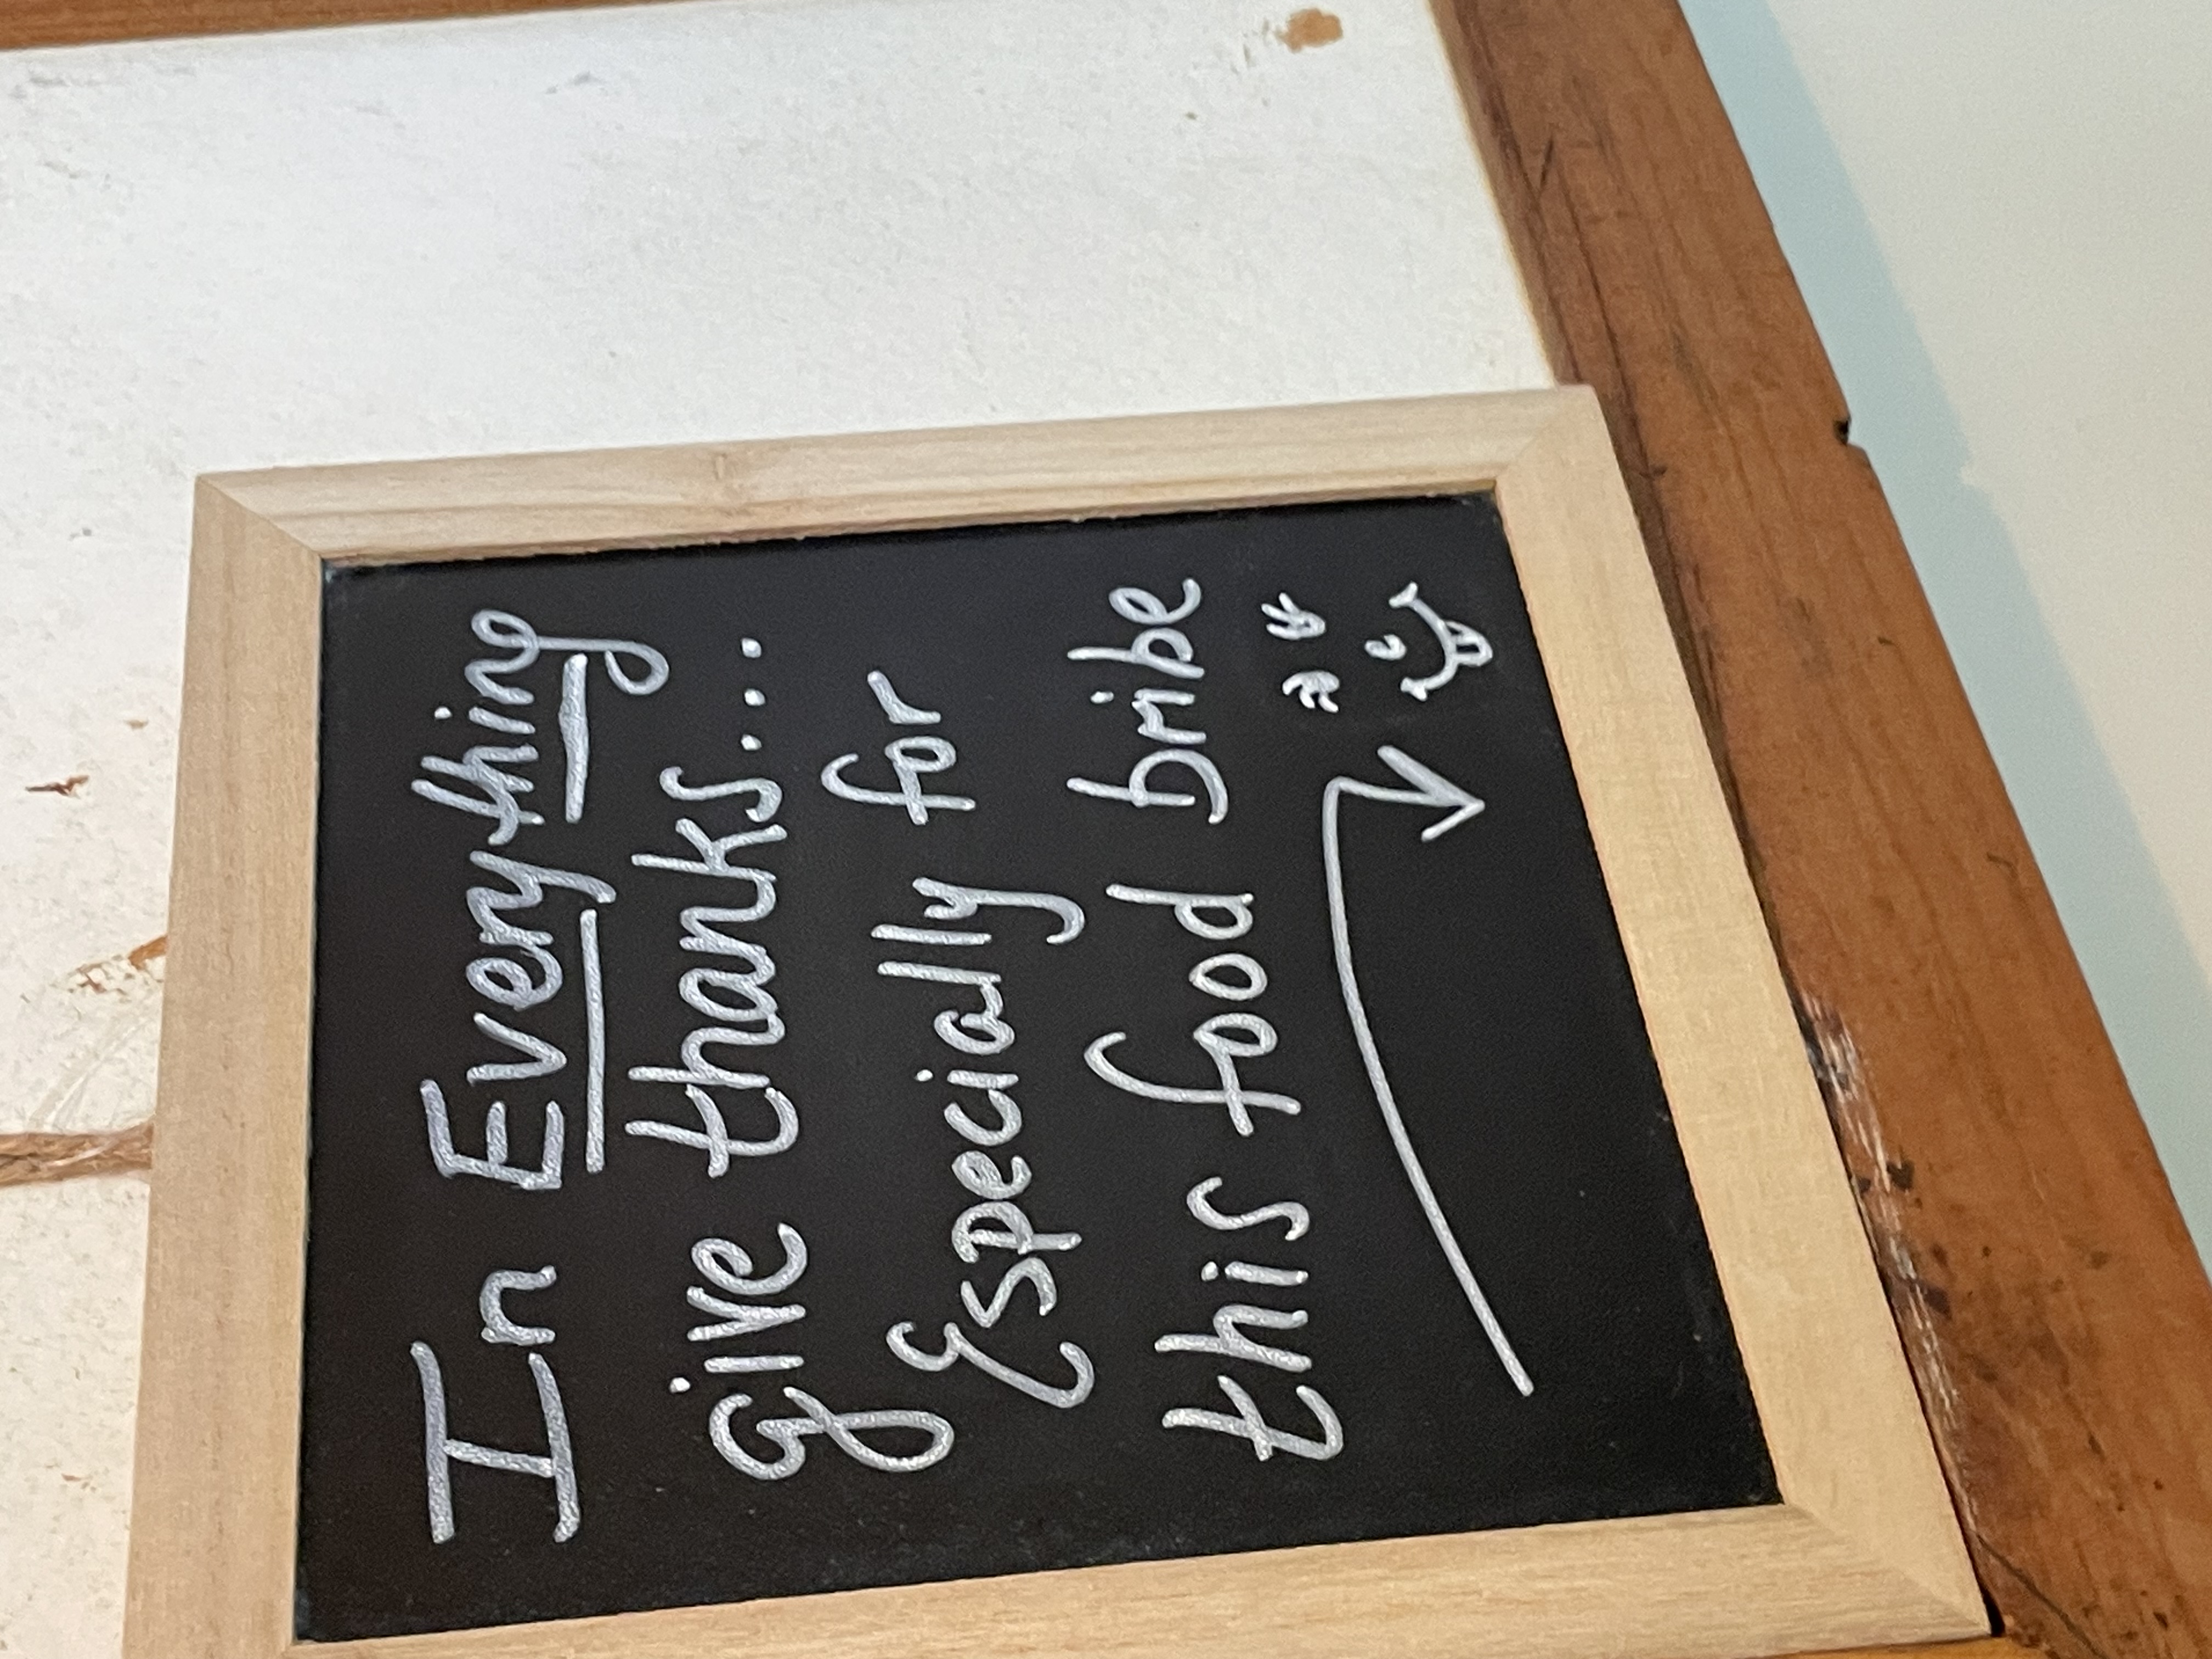 In Everything
give thanks....
Especially for
this food bribe